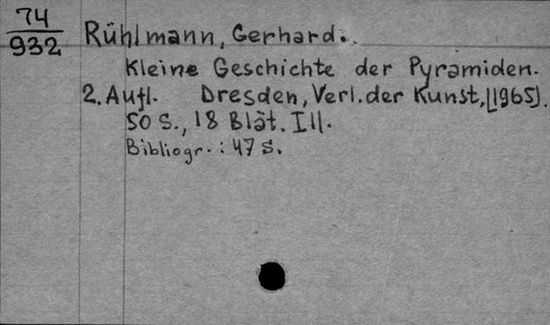 74
932
Rühlmann, Gerhard.
Kleine Geschichte der Pyramiden.
2. Aufl. Dresden, Verl. der Kunst, [1965].
50 S., 18 Blät. Ill.
Bibliogr.: 47 S.